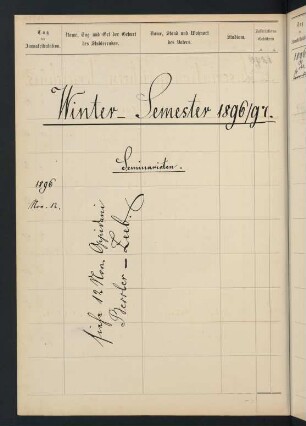 Tag
der
Immatrikulation.
Name, Tag und Ort der Geburt
des Studierenden.
Name, Stand und Wohnort
des Vaters.
Studium.
Winter-Semester 1896/97.
Seminaristen.
1896
Nov. 12.
siehe 12 Nov. Oppidani
Bessler – Zieb.